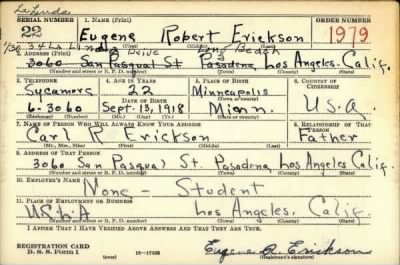 La Linda
SERIAL NUMBER 1. NAME (Print) ORDER NUMBER
22 Eugene Robert Erickson 1979
(First) (Middle) (Last)
La Linda Drive Long Beach
2. ADDRESS (Print)
3060 San Pasqual St. Pasadena, Los Angeles. Calif.
(Number and street or R. F. D. number) (Town) (County) (State)
3. TELEPHONE 4. AGE IN YEARS 5. PLACE OF BIRTH 6. COUNTRY OF CITIZENSHIP
Sycamore 22 Minneapolis
DATE OF BIRTH (Town or county)
6-3060 Sept. 13, 1918 Minn. U.S.A.
(Exchange) (Number) (Mo.) (Day) (Yr.) (State or country)
7. NAME OF PERSON WHO WILL ALWAYS KNOW YOUR ADDRESS 8. RELATIONSHIP OF THAT PERSON
Carl R. Erickson Father
(Mr., Mrs., Miss) (First) (Middle) (Last)
9. ADDRESS OF THAT PERSON
3060 San Pasqual St. Pasadena, Los Angeles Calif.
(Number and street or R. F. D. number) (Town) (County) (State)
10. EMPLOYER'S NAME
None - Student
11. PLACE OF EMPLOYMENT OR BUSINESS
U.C.L.A Los Angeles. Calif.
(Number and street or R. F. D. number) (Town) (County) (State)
I AFFIRM THAT I HAVE VERIFIED ABOVE ANSWERS AND THAT THEY ARE TRUE.
REGISTRATION CARD
D. S. S. FORM 1 16-17105 Eugene R. Erickson
(Registrant's signature)